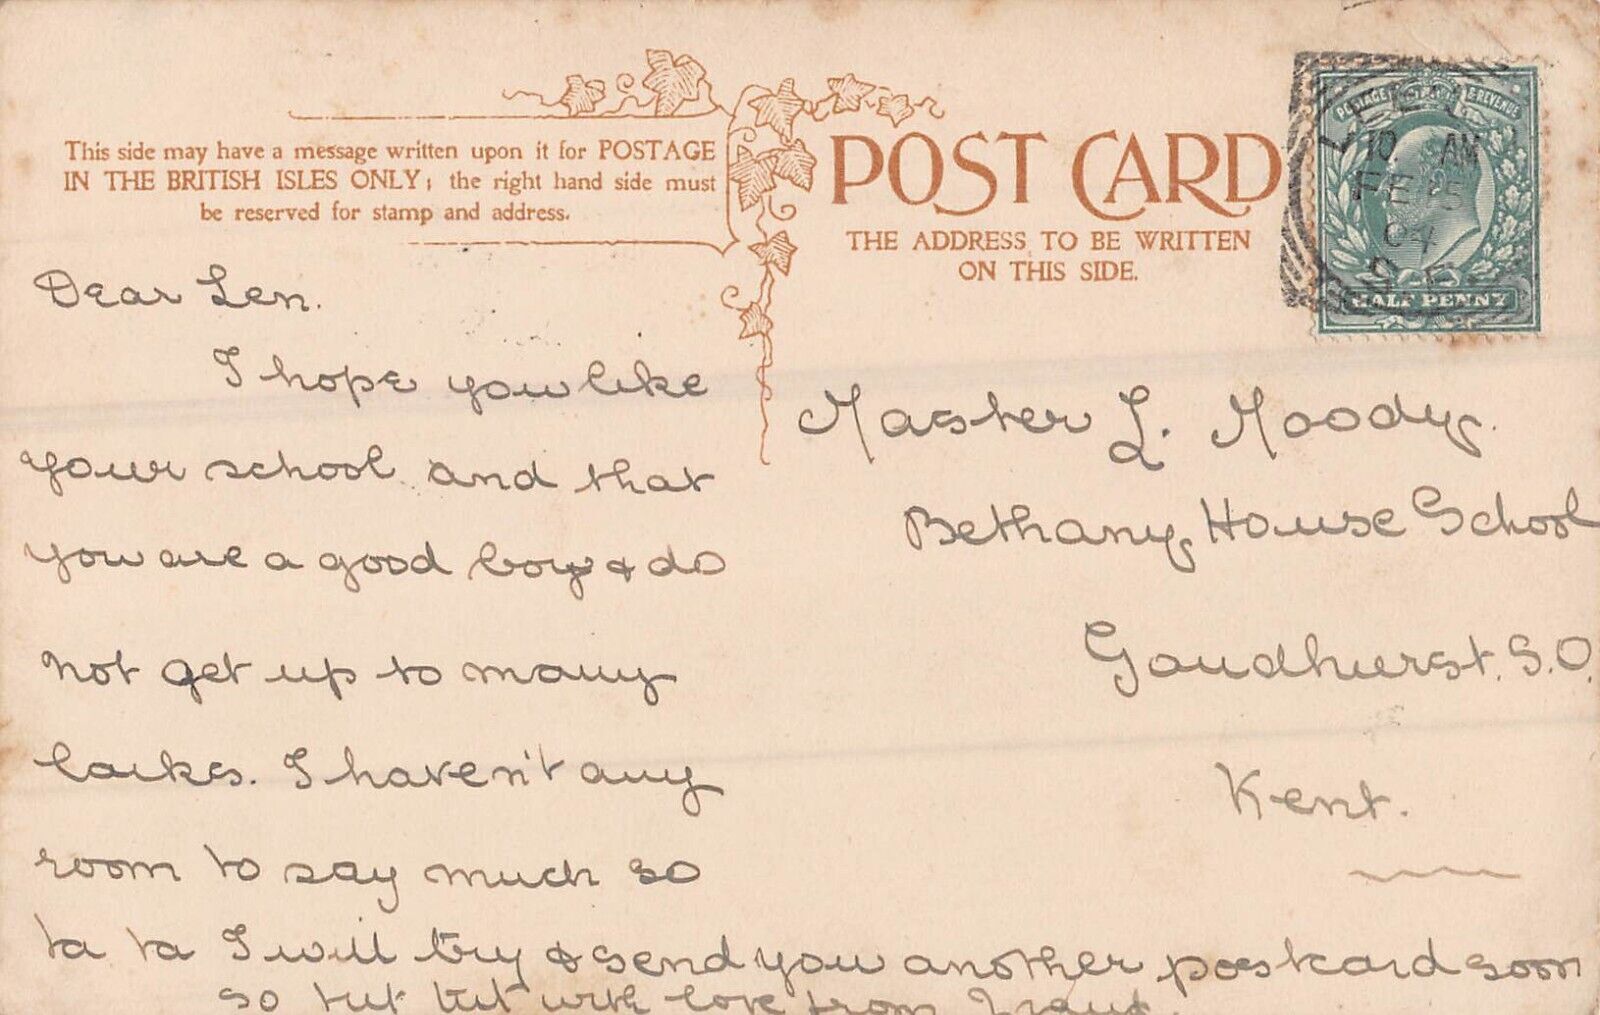 This side may have a message written upon it for POSTAGE
IN THE BRITISH ISLES ONLY; the right hand side must
be reserved for stamp and address.
POST CARD
THE ADDRESS TO BE WRITTEN
ON THIS SIDE.
POSTAGE & REVENUE
10 AM
FE 15
04
S.E
HALF PENNY
Dear Len.
I hope you like
your school and that
you are a good boy & do
not get up to many
larks. I haven't any
room to say much so
ta ta I will try & send you another postcard soon
so tut tut with love from
Master L. Moody.
Bethany House School
Goudhurst. S.O.
Kent.